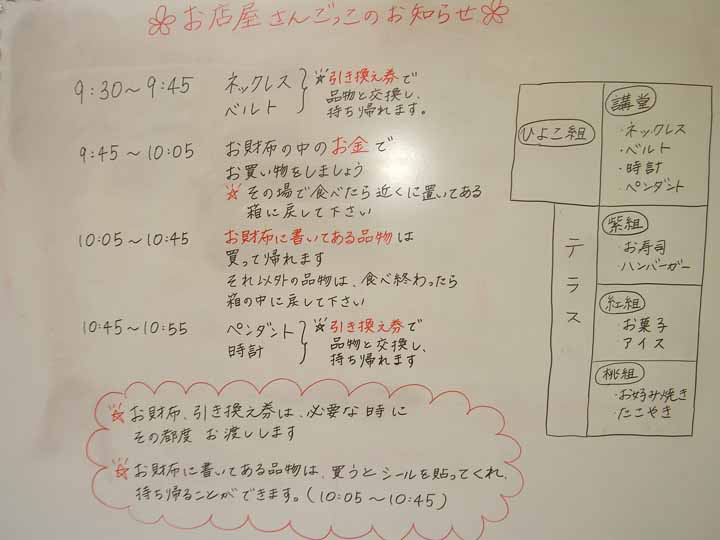 お店屋さんごっこのお知らせ
9:30～9:45 ネックレス ☆引き換え券で
ベルト 品物と交換し、
持ち帰れます。
9:45～10:05 お財布の中のお金で
お買い物をしましょう
☆その場で食べたら近くに置いてある
箱に戻して下さい
10:05～10:45 お財布に書いてある品物は
買って帰れます
それ以外の品物は、食べ終わったら
箱の中に戻して下さい
10:45～10:55 ペンダント ☆引き換え券で
時計 品物と交換し、
持ち帰れます
☆お財布、引き換え券は、必要な時に
その都度 お渡しします
☆お財布に書いてある品物は、買うとシールを貼ってくれ、
持ち帰ることができます。(10:05～10:45)
ひよこ組
講堂
・ネックレス
・ベルト
・時計
・ペンダント
テラス
紫組
・お寿司
・ハンバーガー
紅組
・お菓子
・アイス
桃組
・お好み焼き
・たこやき